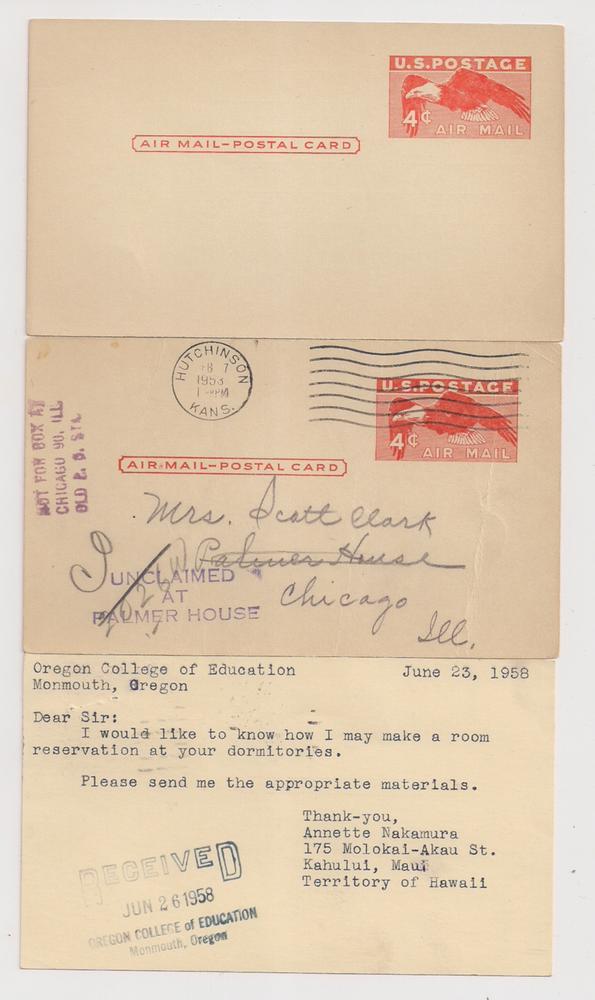 U.S. POSTAGE
4¢ AIR MAIL
AIR MAIL—POSTAL CARD
HUTCHINSON
7
1953
PM
KANS.
U.S. POSTAGE
4¢ AIR MAIL
AIR MAIL—POSTAL CARD
NOT FOR BOX AT
CHICAGO 90, ILL
OLD P. O. STA.
Mrs. Scott Clark
Palmer House
Chicago
Ill.
UNCLAIMED
AT
PALMER HOUSE
Oregon College of Education June 23, 1958
Monmouth, Oregon
Dear Sir:
I would like to know how I may make a room
reservation at your dormitories.
Please send me the appropriate materials.
Thank-you,
Annette Nakamura
175 Molokai-Akau St.
Kahului, Maui
Territory of Hawaii
RECEIVED
JUN 26 1958
OREGON COLLEGE of EDUCATION
Monmouth, Oregon